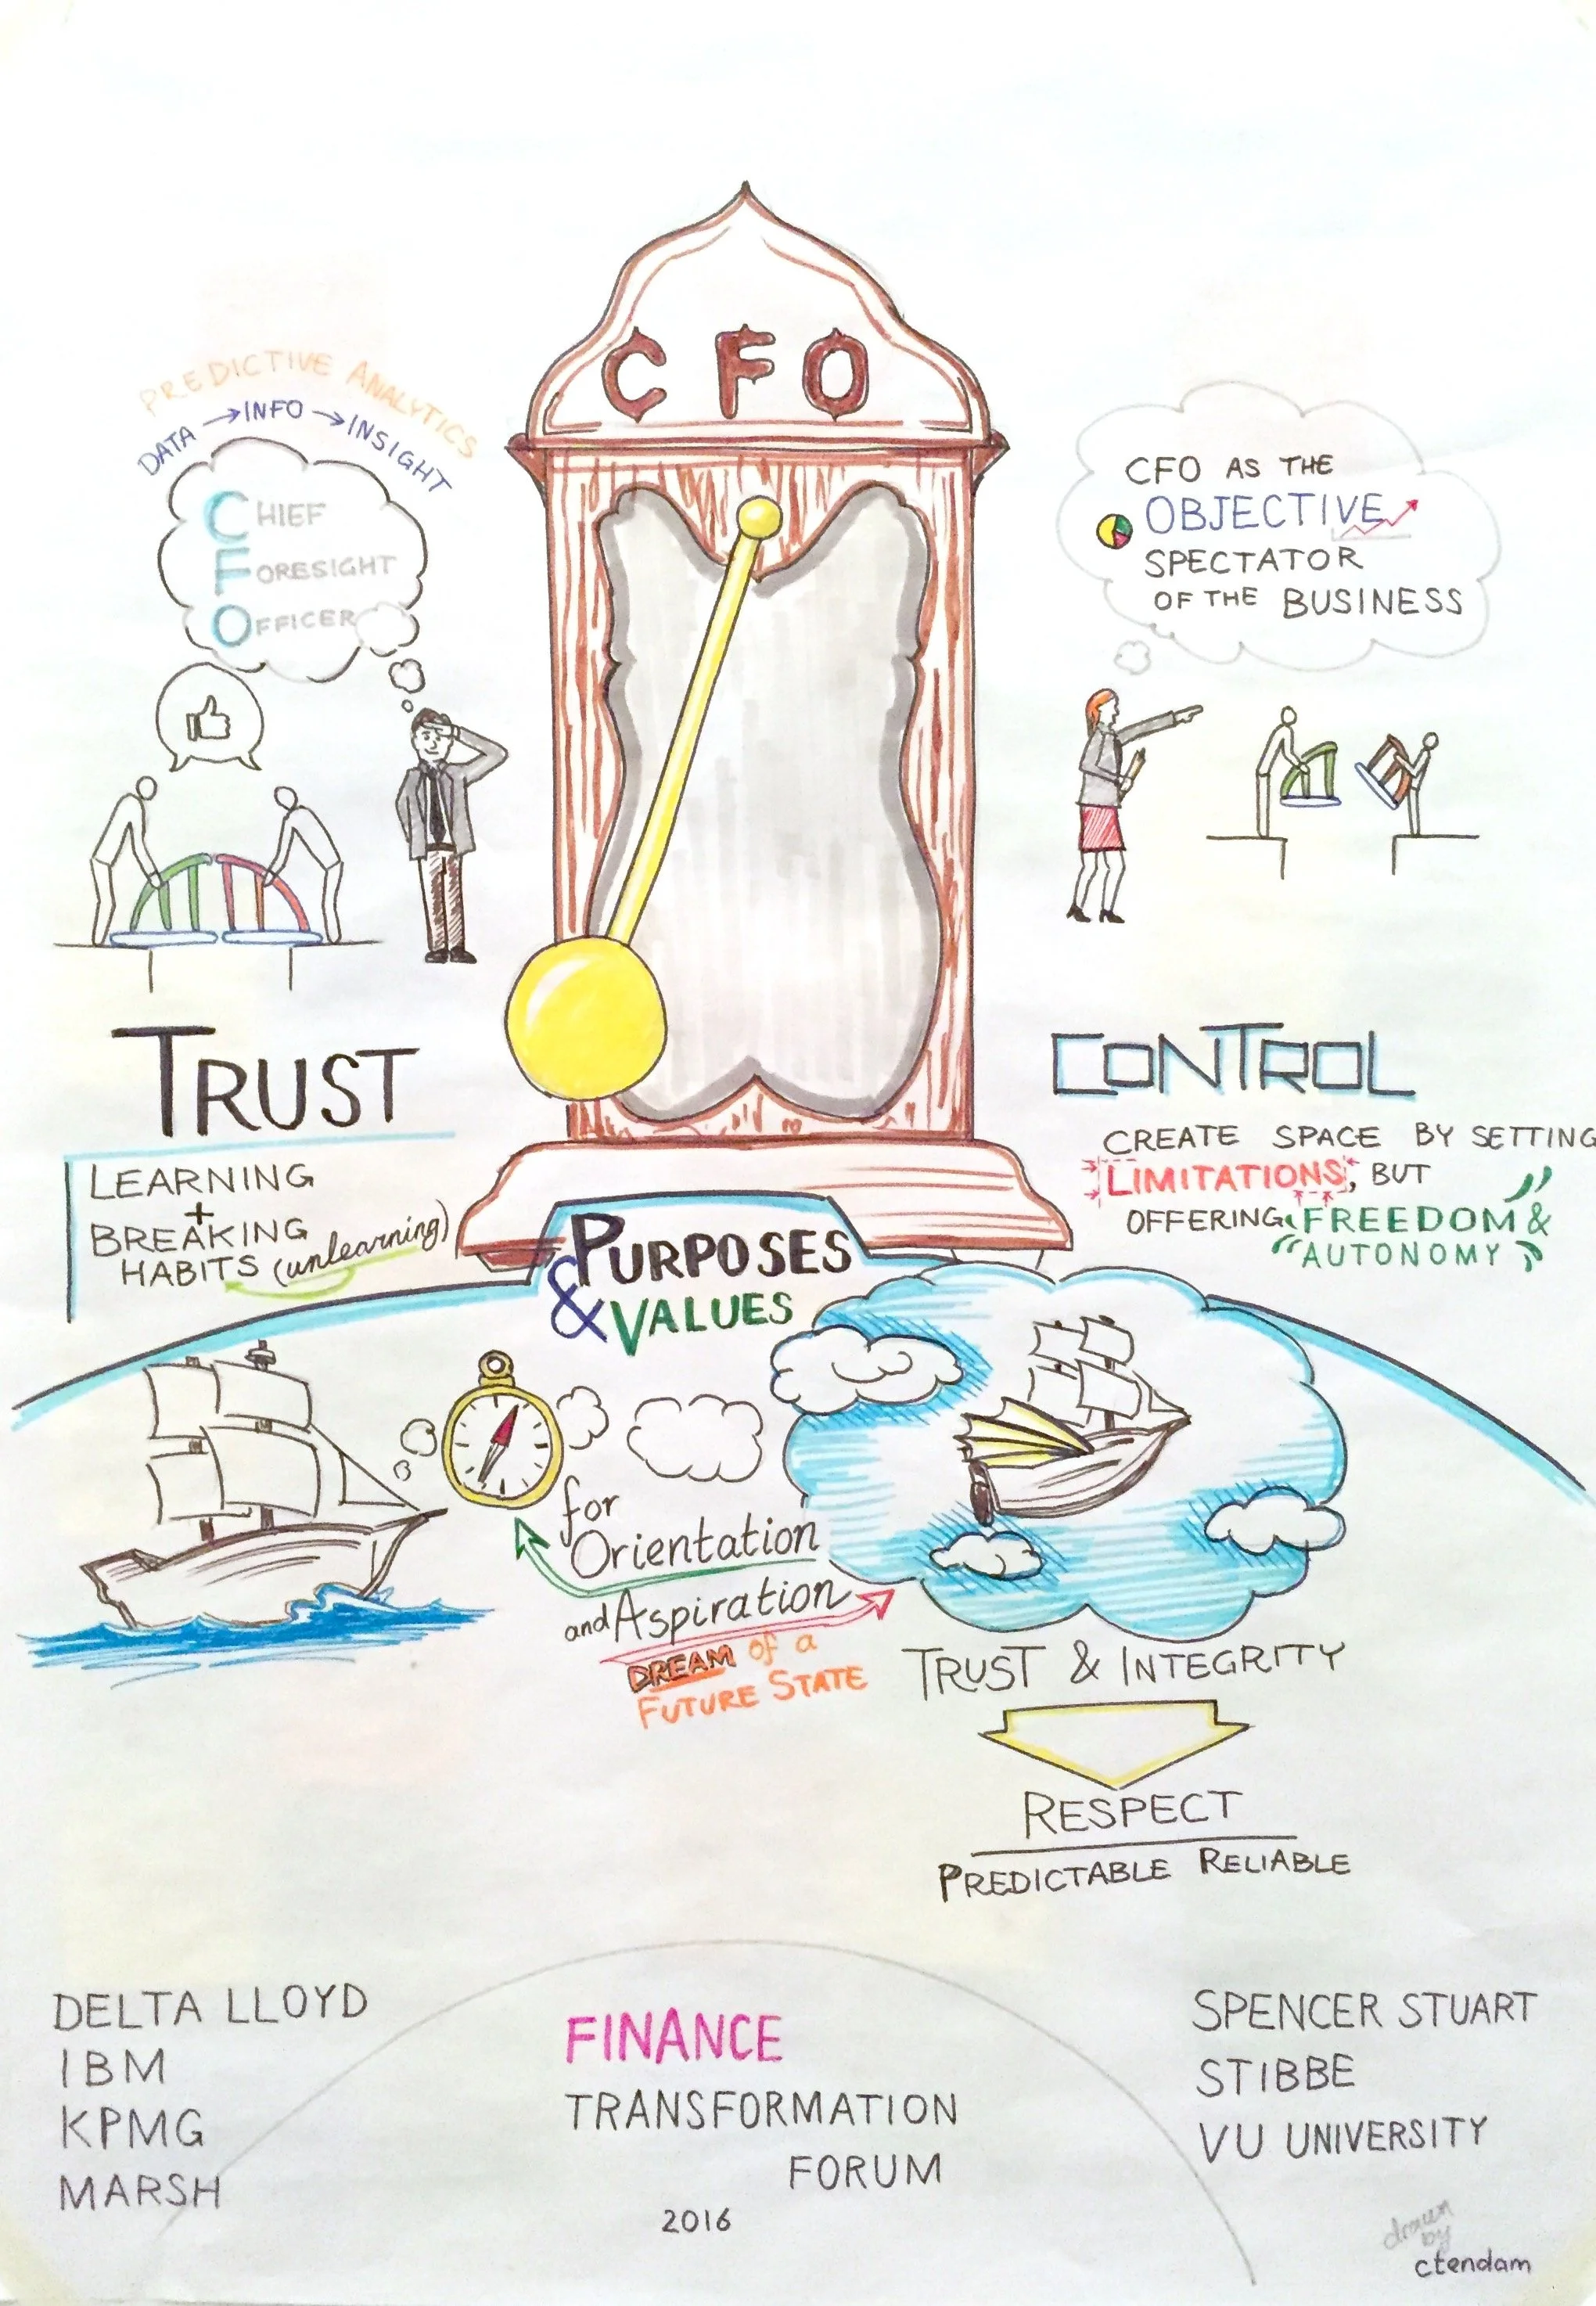 CFO
PREDICTIVE ANALYTICS
DATA → INFO → INSIGHT
CHIEF
FORESIGHT
OFFICER
CFO AS THE
OBJECTIVE
SPECTATOR
OF THE BUSINESS
TRUST
LEARNING
+
BREAKING
HABITS (unlearning)
CONTROL
CREATE SPACE BY SETTING
LIMITATIONS, BUT
OFFERING FREEDOM &
AUTONOMY
PURPOSES
& VALUES
for
Orientation
and Aspiration
DREAM of a
FUTURE STATE
TRUST & INTEGRITY
RESPECT
PREDICTABLE RELIABLE
DELTA LLOYD
IBM
KPMG
MARSH
FINANCE
TRANSFORMATION
FORUM
2016
SPENCER STUART
STIBBE
VU UNIVERSITY
drawn
by
ctendam